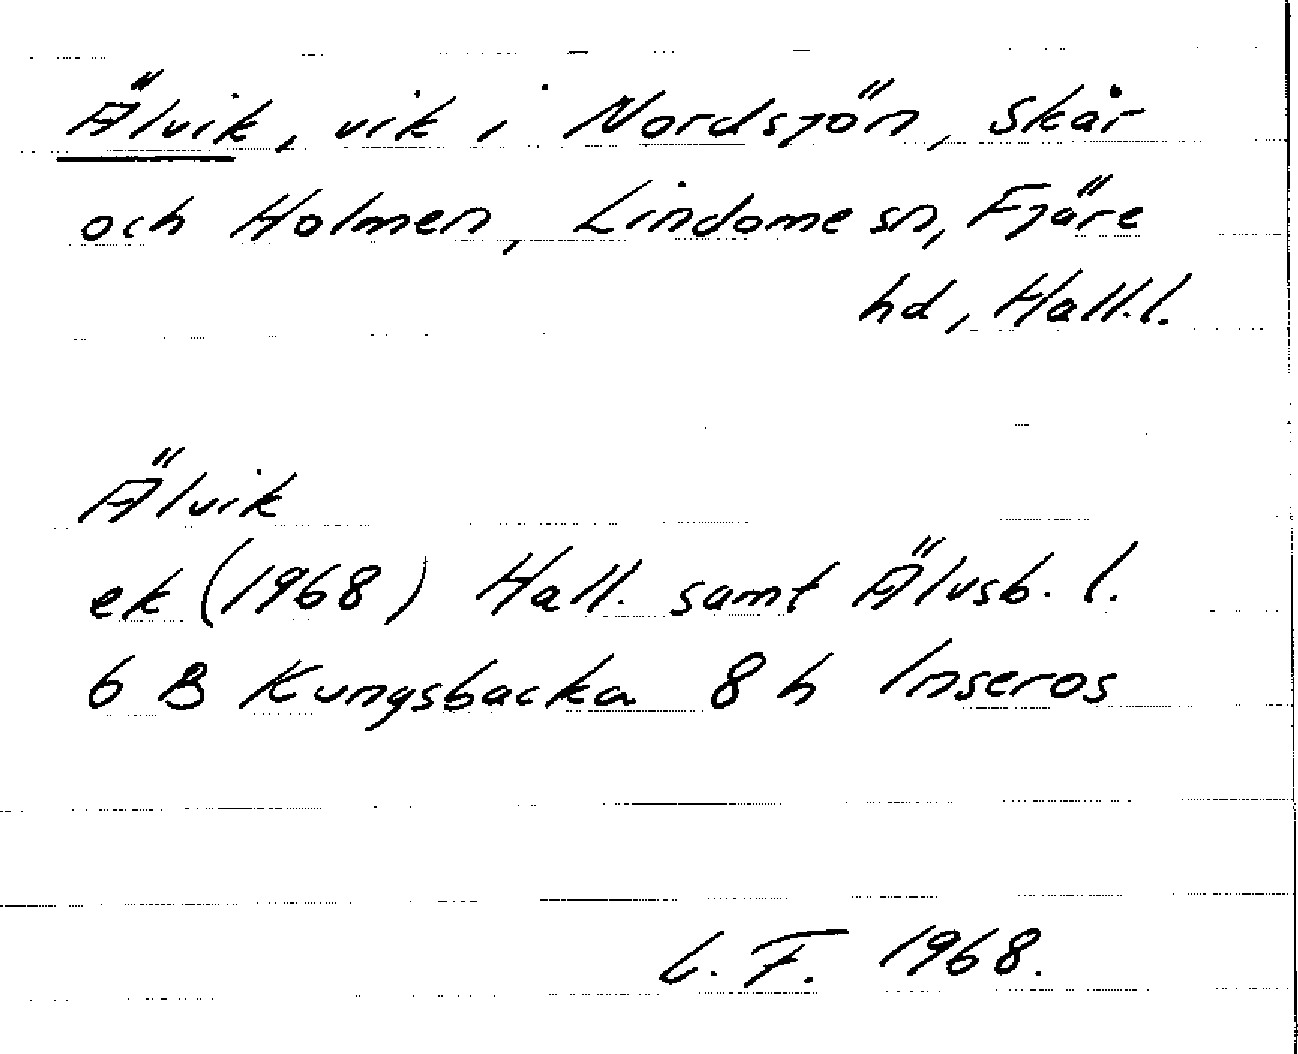 Älvik, vik i Nordsjön, Skår
och Holmen, Lindome sn, Fjäre
hd, Hall.l.
Älvik
ek (1968) Hall. samt Älvsb. l.
6 B Kungsbacka 8 h Inseros
L. F. 1968.